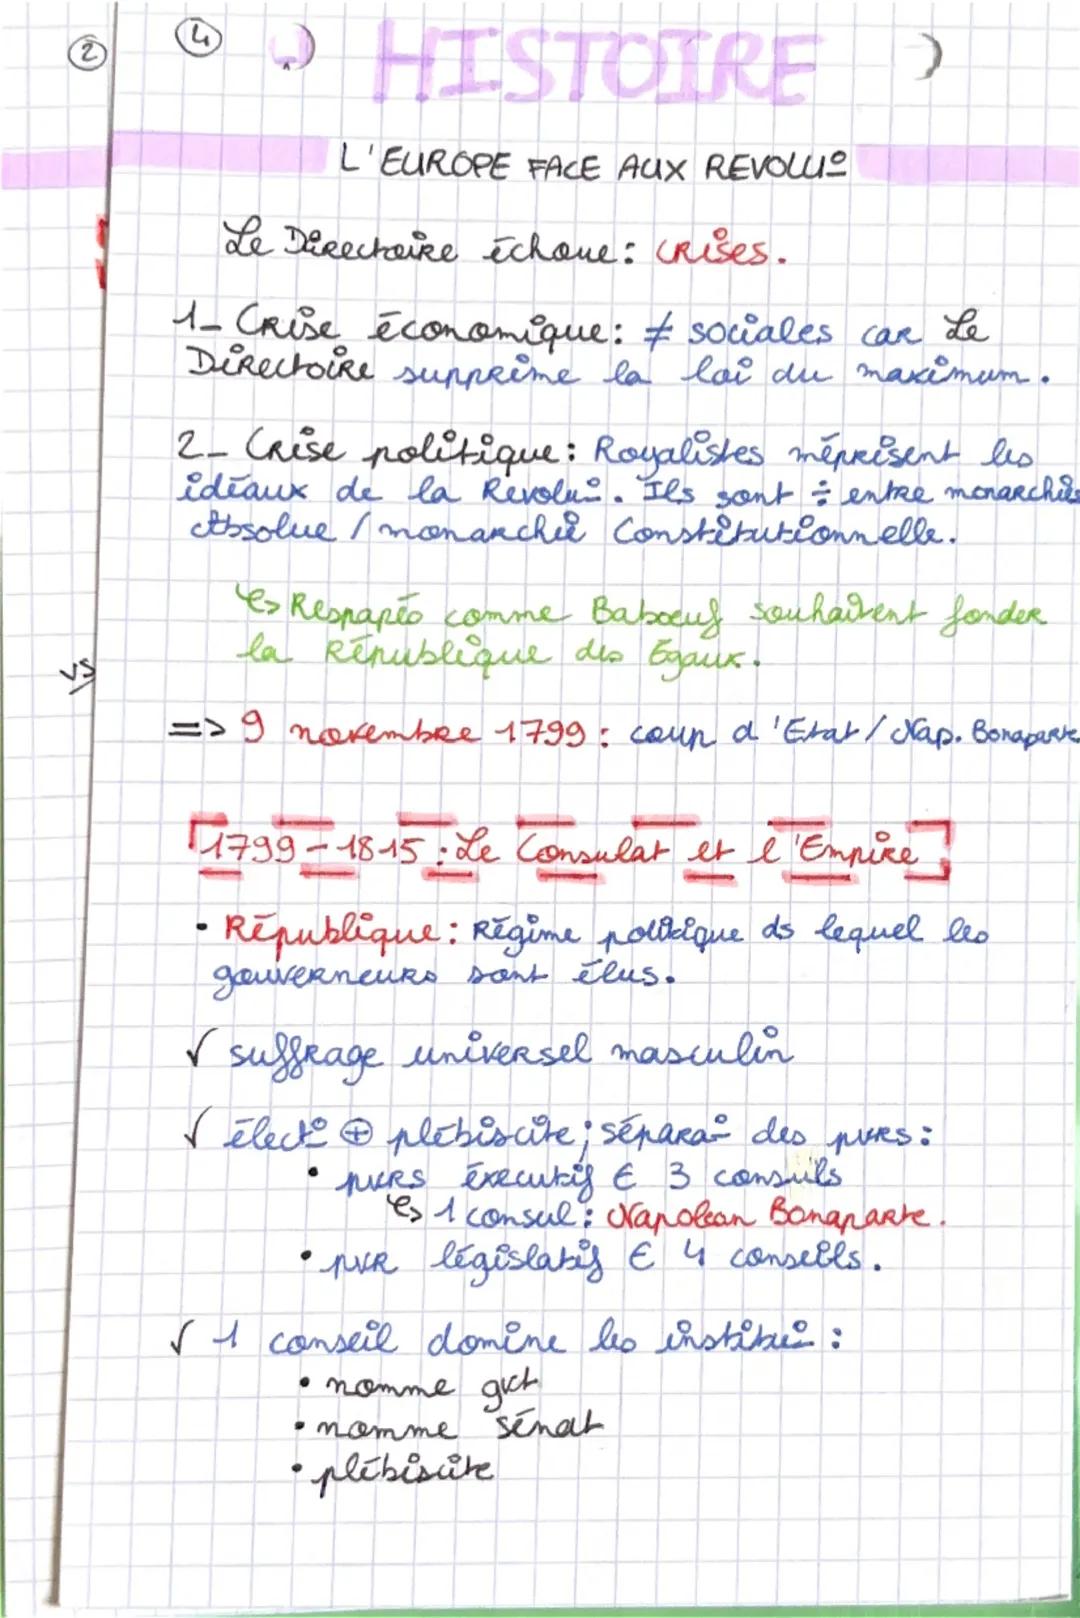 2
4
HISTOIRE
L'EUROPE FACE AUX REVOLU°
Le Directoire échoue: CRises.
1_ CRise économique: ≠ sociales car Le
Directoire supprime la loi du maximum.
2_ CRise politique: Royalistes méprisent les
idéaux de la Révolu°. Ils sont ÷ entre monarchies
Absolue / monarchie Constitutionnelle.
comme Baboeuf souhaitent fonder
la République des Égaux.
VS
=> 9 novembre 1799: coup d'Etat / Nap. Bonaparte
1799-1815: Le Consulat et l'Empire
• République: Régime politique ds lequel les
gouverneurs sont élus.
√ suffrage universel masculin
√ élect° ⊕ plébiscite; sépara° des pvrs:
• pvrs éxecutif € 3 consuls
↳ 1 consul: Napoléan Bonaparte.
• pvr législatif € 4 conseils.
√ 1 conseil domine les institu°:
• nomme gvt
• nomme sénat
• plébiscite